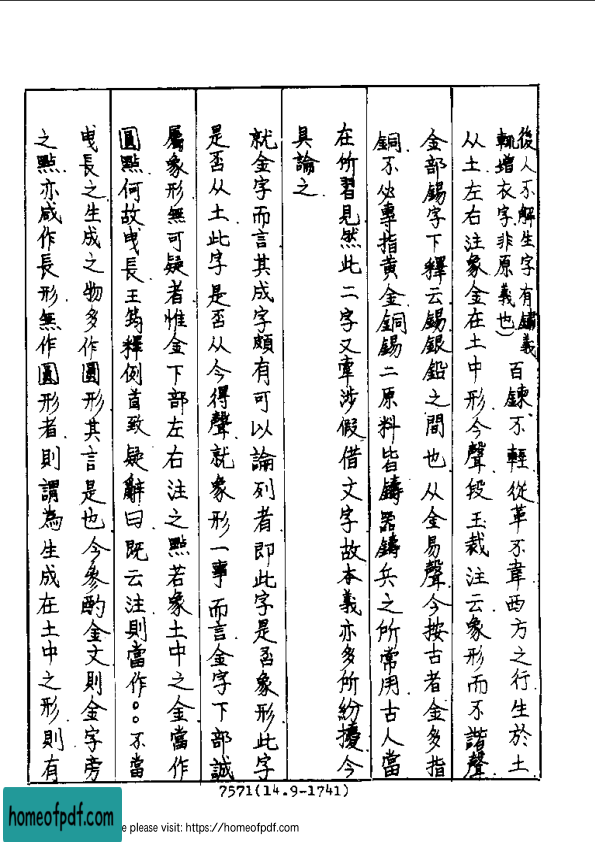 後人不解生字有鏽義
輒增衣字非原義也）
百鍊不輕從革不韋西方之行生於土
从土左右注象金在土中形今聲段玉裁注云象形而不諧聲
金部錫字下釋云錫銀鉛之間也从金易聲今按古者金多指
銅不必專指黃金銅錫二原料皆鑄器鑄兵之所常用古人當
在所習見然此二字又牽涉假借文字故本義亦多所紛擾今
具論之
就金字而言其成字頗有可以論列者即此字是否象形此字
是否从土此字是否从今得聲就象形一事而言金字下部誠
屬象形無可疑者惟金下部左右注之點若象土中之金當作
圓點何故曳長王筠釋例首致疑辭曰既云注則當作。。不當
曳長之生成之物多作圓形其言是也今參酌金文則金字旁
之點亦咸作長形無作圓形者則謂為生成在土中之形則有
7571(14.9-1741)
homeofpdf.com
e please visit: https://homeofpdf.com